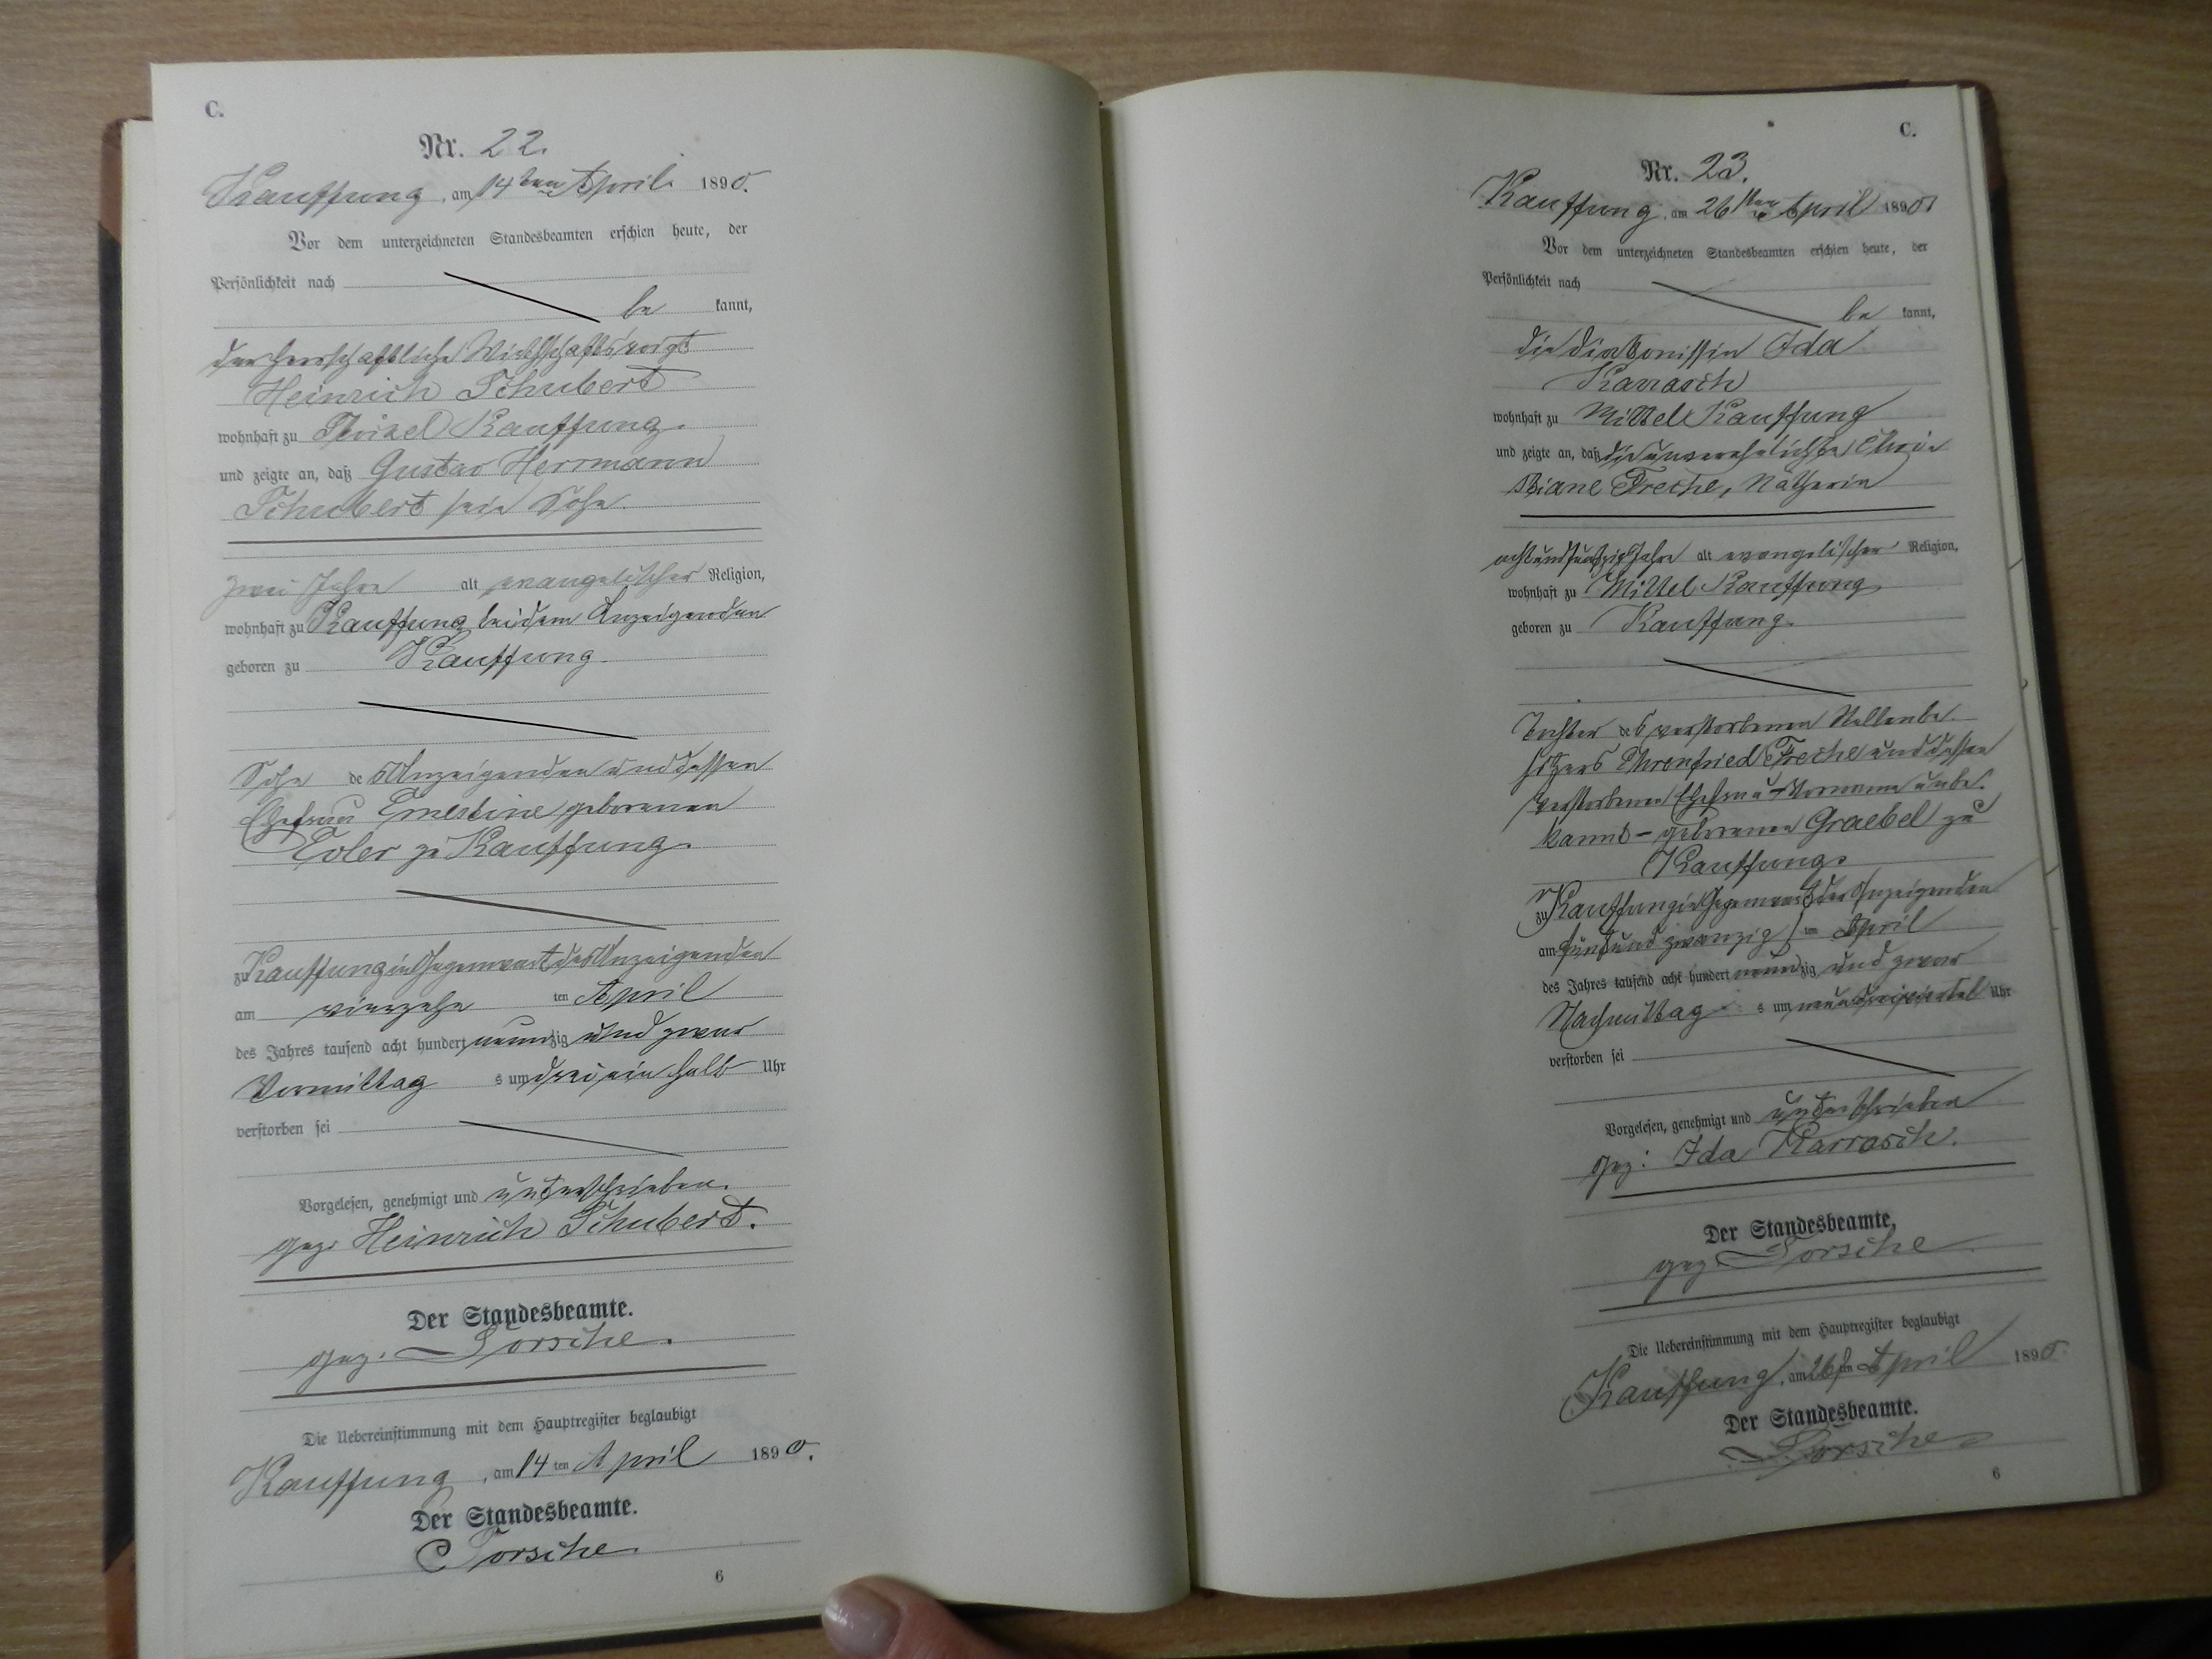 C.
Nr. 22.
Kauffung, am 14ten April 1890.
Vor dem unterzeichneten Standesbeamten erschien heute, der
Persönlichkeit nach
be kannt,
der herrschaftliche Wirthschaftsvoigt
Heinrich Schubert
wohnhaft zu Kauffung.
und zeigte an, daß Gustav Herrmann
Schubert sein Sohn
zwei Jahre alt evangelischer Religion,
wohnhaft zu Kauffung bei dem Anzeigenden
geboren zu Kauffung.
Sohn des Anzeigenden und dessen
Ehefrau Ernestine geborenen
zu Kauffung.
zu Kauffung in Gegenwart des Anzeigenden
am vierzehn ten April
des Jahres tausend acht hundert neunzig und zwar
Vormittag s um drei ein halb Uhr
verstorben sei
Vorgelesen, genehmigt und unterschrieben.
gez. Heinrich Schubert.
Der Standesbeamte.
gez. Torsche.
Die Uebereinstimmung mit dem Hauptregister beglaubigt
Kauffung, am 14 ten April 1890.
Der Standesbeamte.
Torsche
6
C.
Nr. 23.
Kauffung, am 26ten April 1890
Vor dem unterzeichneten Standesbeamten erschien heute, der
Persönlichkeit nach
be kannt,
die Diakonissin Ida
Karrasch
wohnhaft zu Mittel Kauffung
und zeigte an, daß die unverehelichte Chri
stiane Freche, Nätherin
achtundfünfzig Jahre alt evangelischer Religion,
wohnhaft zu Mittel Kauffung
geboren zu Kauffung.
Tochter des verstorbenen Stellenbe
sitzers Ehrenfried Freche und dessen
verstorbenen Ehefrau Vorname unbe
kannt – geborenen Graebel zu
Kauffung.
zu Kauffung in Gegenwart der Anzeigenden
am fünfund zwanzig ten April
des Jahres tausend acht hundert neunzig und zwar
Nachmittag s um neun dreiviertel Uhr
verstorben sei
Vorgelesen, genehmigt und unterschrieben
gez: Ida Karrasch.
Der Standesbeamte,
gez. Torsche
Die Uebereinstimmung mit dem Hauptregister beglaubigt
Kauffung, am 26 ten April 1890.
Der Standesbeamte.
Torsche
6